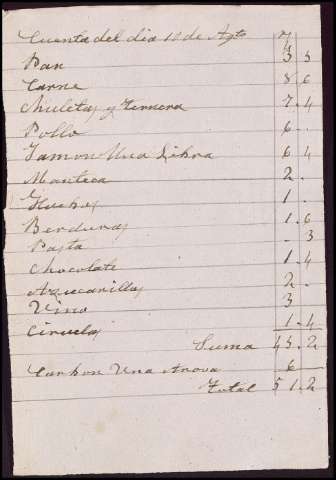 Cuenta del dia 18 de Agto
Pan 3 3
Carne 8 6
Chuletas y ternera 7. 4
Pollo 6 .
Jamon Una libra 6 4
Manteca 2 .
Huebos 1 .
Berduras 1 . 6
Pasta . 3
Chocolate 1 . 4
Azucarillos 2 .
Vino 3
Ciruelas 1 . 4
Suma 45 . 2
Carbon Una Arova 6
Total 51 . 2